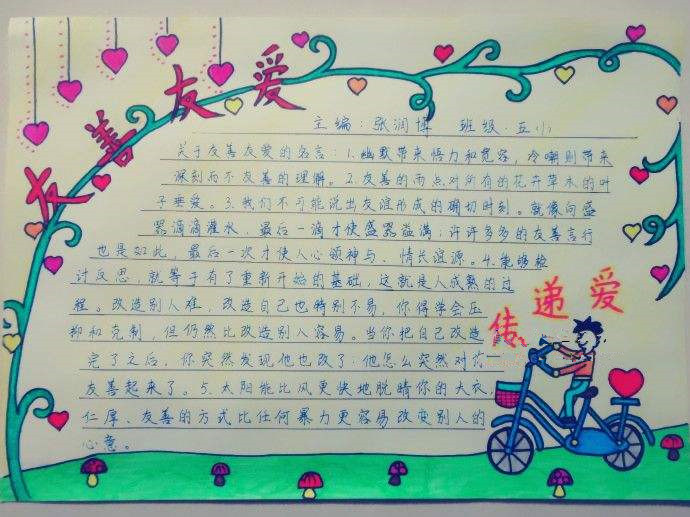 友善友爱
主编:张润博 班级:五(1)
关于友善友爱的名言:1.幽默带来悟力和宽容,冷嘲则带来
深刻而不友善的理解。2.友善的雨点对所有的花卉草木的叶
子垂爱。3.我们不可能说出友谊形成的确切时刻。就像向盛
器滴滴灌水,最后一滴才使盛器溢满;许许多多的友善言行
也是如此,最后一次才使人心领神与、情长谊源。4.能够检
讨反思,就等于有了重新开始的基础,这就是人成熟的过
程。改造别人难,改造自己也特别不易,你得学会压
抑和克制,但仍然比改造别人容易。当你把自己改造
完了之后,你突然发现他也改了:他怎么突然对你
友善起来了。5.太阳能比风更快地脱晴你的大衣,
仁厚、友善的方式比任何暴力更容易改变别人的
心意。
传递爱